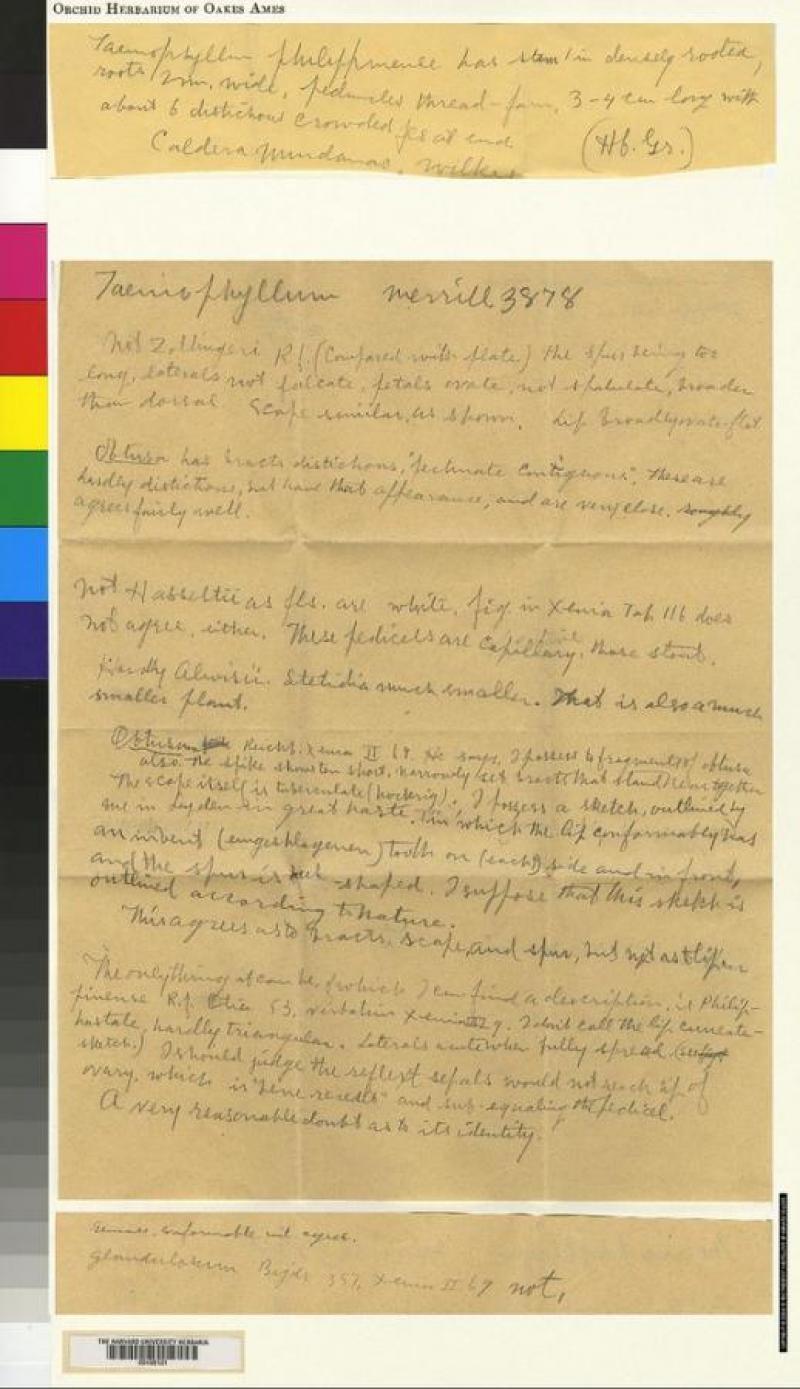 Orchid Herbarium of Oakes Ames
Taeniophyllum philippinense has stem 1 in densely rooted,
roots 2 mm. wide, peduncles thread-form, 3-4 cm long with
about 6 distichous crowded fls at end
Caldera Mindanao. Wilkes (Hb. Gr.)
Taeniophyllum Merrill 3878
Not Zollingeri R f. (Compared with plate) the spur being too
long, laterals not falcate, petals ovate, not spatulate, broader
than dorsal. Scape similar, as shown. Lip broadly ovate-flat
Obtusum has bracts distichous, "pectinate contiguous". These are
hardly distichous, but have that appearance, and are very close. roughly
agrees fairly well.
Not Hasseltii as fls. are white. fig. in Xenia Tab 116 does
not agree, either. These pedicels are capillary, those stout.
Hardly Alwisii. Stelidia much smaller. That is also a much
smaller plant.
Obtusum Reichb. Xenia II 68. He says, I possess fragments of obtusa
also. The spike shows ten short, narrowly set bracts that stand near together
The scape itself is tuberculate (höckerig). I possess a sketch, outlined by
me in Leyden in great haste, in which the lip conformably has
an inbent (eingeschlagenen) tooth on (each?) side and in front,
and the spur is -shaped. I suppose that this sketch is
outlined according to nature.
This agrees as to bracts, scape, and spur, but not as to lip
The only thing it can be, of which I can find a description, is Philip-
pinense R.f. Otia 53, I don't call the lip cuneate-
hastate, hardly triangular. Laterals acute when fully spread
sketch.) I should judge the reflext sepals would not reach tip of
ovary, which is "bene recedit" and sub-equaling the pedicel.
A very reasonable doubt as to its identity.
conformable not agree.
glandulosum Bijdr 357, Xenia II 67 not,
THE HARVARD UNIVERSITY HERBARIA